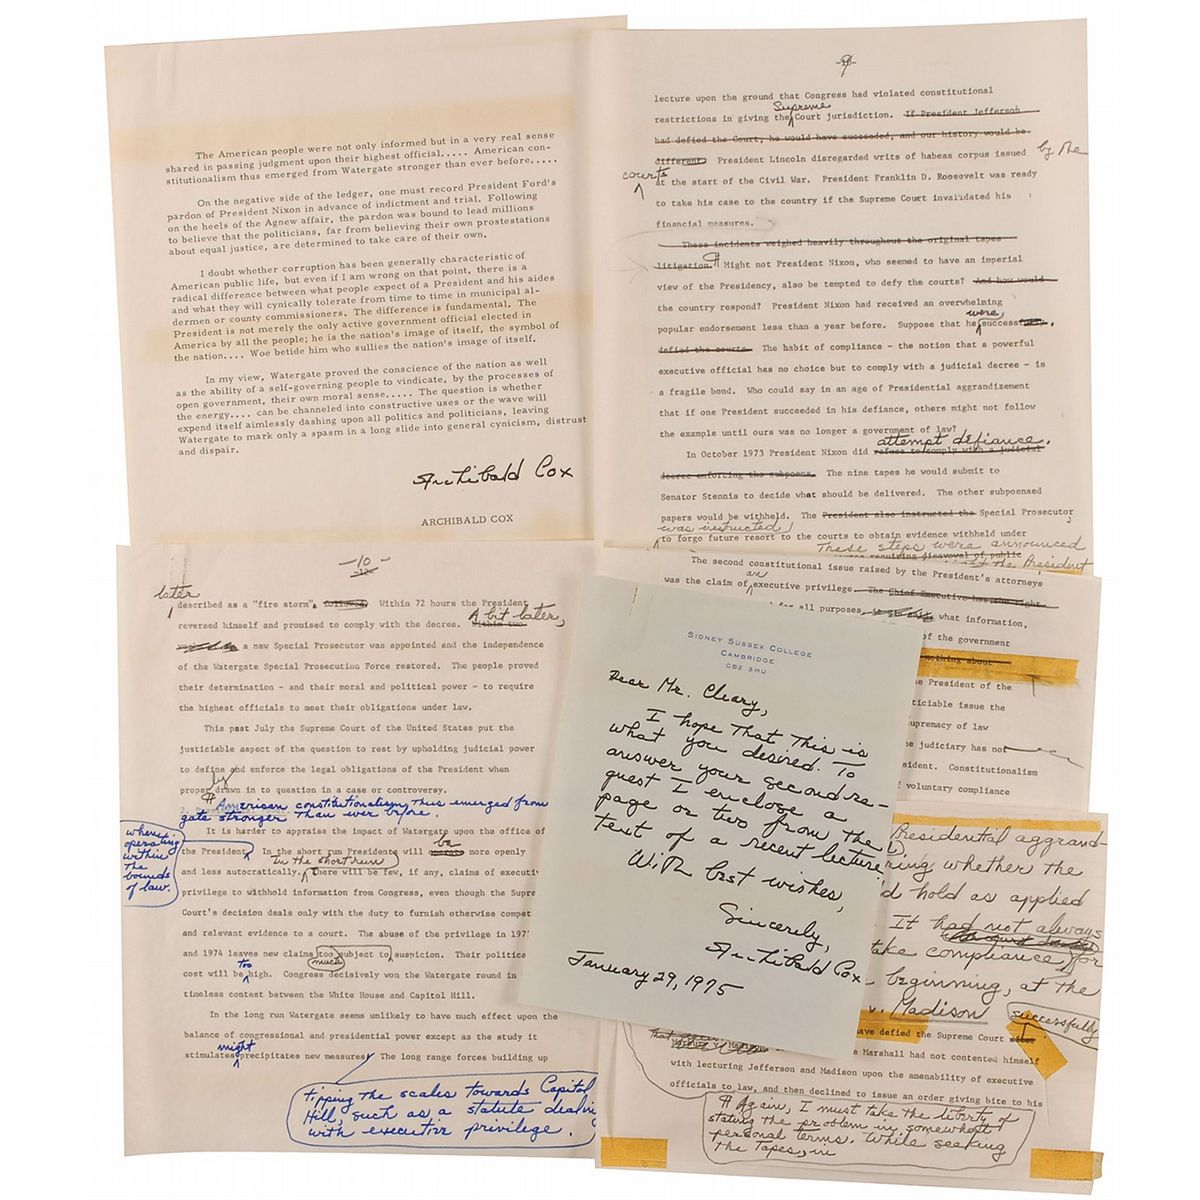 The American people were not only informed but in a very real sense
shared in passing judgment upon their highest official..... American con-
stitutionalism thus emerged from Watergate stronger than ever before.....
On the negative side of the ledger, one must record President Ford's
pardon of President Nixon in advance of indictment and trial. Following
on the heels of the Agnew affair, the pardon was bound to lead millions
to believe that the politicians, far from believing their own prostestations
about equal justice, are determined to take care of their own.
I doubt whether corruption has been generally characteristic of
American public life, but even if I am wrong on that point, there is a
radical difference between what people expect of a President and his aides
and what they will cynically tolerate from time to time in municipal al-
dermen or county commissioners. The difference is fundamental. The
President is not merely the only active government official elected in
America by all the people; he is the nation's image of itself, the symbol of
the nation.... Woe betide him who sullies the nation's image of itself.
In my view, Watergate proved the conscience of the nation as well
as the ability of a self-governing people to vindicate, by the processes of
open government, their own moral sense..... The question is whether
the energy.... can be channeled into constructive uses or the wave will
expend itself aimlessly dashing upon all politics and politicians, leaving
Watergate to mark only a spasm in a long slide into general cynicism, distrust
and despair.
Archibald Cox
ARCHIBALD COX
9
lecture upon the ground that Congress had violated constitutional
Supreme
restrictions in giving the Court jurisdiction. If President Jefferson
had defied the Court, he would have succeeded, and our history would be
different. President Lincoln disregarded writs of habeas corpus issued by the
courts
at the start of the Civil War. President Franklin D. Roosevelt was ready
to take his case to the country if the Supreme Court invalidated his
financial measures.
These incidents weighed heavily throughout the original tapes
litigation. ¶ Might not President Nixon, who seemed to have an imperial
view of the Presidency, also be tempted to defy the courts? And how would
the country respond? President Nixon had received an overwhelming
were,
popular endorsement less than a year before. Suppose that he success
defied the courts. The habit of compliance - the notion that a powerful
executive official has no choice but to comply with a judicial decree - is
a fragile bond. Who could say in an age of Presidential aggrandizement
that if one President succeeded in his defiance, others might not follow
the example until ours was no longer a government of law?
attempt defiance.
In October 1973 President Nixon did refuse to comply with a judicial
decree enforcing the subpoena. The nine tapes he would submit to
Senator Stennis to decide what should be delivered. The other subpoenaed
papers would be withheld. The President also instructed the Special Prosecutor
was instructed
to forgo future resort to the courts to obtain evidence withheld under
These steps were announced
requiring disavowal of public
the President
-10-
later
described as a "fire storm". followed. Within 72 hours the President
reversed himself and promised to comply with the decree. A bit later,
Within two
a new Special Prosecutor was appointed and the independence
of the Watergate Special Prosecution Force restored. The people proved
their determination - and their moral and political power - to require
the highest officials to meet their obligations under law.
This past July the Supreme Court of the United States put the
justiciable aspect of the question to rest by upholding judicial power
to define and enforce the legal obligations of the President when
ly
proper drawn in to question in a case or controversy.
¶ American constitutionalism thus emerged from
gate stronger than ever before.
It is harder to appraise the impact of Watergate upon the office of
where
operating
within
the
bounds
of law.
be
the President. In the short run President will more openly
In the short run
and less autocratically. There will be few, if any, claims of executi
privilege to withhold information from Congress, even though the Supre
Court's decision deals only with the duty to furnish otherwise compet
and relevant evidence to a court. The abuse of the privilege in 197
and 1974 leaves new claims too subject to suspicion. Their politica
too much
cost will be high. Congress decisively won the Watergate round in
timeless contest between the White House and Capitol Hill.
In the long run Watergate seems unlikely to have much effect upon the
balance of congressional and presidential power except as the study it
might
stimulates precipitates new measures The long range forces building up
tipping the scales towards Capitol
Hill, such as a statute dealing
with executive privilege.
The second constitutional issue raised by the President's attorneys
an
was the claim of executive privilege. The Chief Executive has the right
for all purposes, what information,
of the government
nothing about
e President of the
ticiable issue the
upremacy of law
he judiciary has not
sident. Constitutionalism
f voluntary compliance
SIDNEY SUSSEX COLLEGE
CAMBRIDGE
CB2 3HU
Dear Mr. Cleary,
I hope that this is
what you desired. To
answer your second re-
quest I enclose a
page or two from the
text of a recent lecture.
With best wishes,
Sincerely,
Archibald Cox
January 29, 1975
Presidential aggrand-
ring whether the
d hold as applied
It had not always
take compliance for
beginning, at the
v. Madison
successfully
have defied the Supreme Court after
e Marshall had not contented himself
with lecturing Jefferson and Madison upon the amenability of executive
officials to law, and then declined to issue an order giving bite to his
¶ Again, I must take the liberty of
stating the problem in somewhat
personal terms. While seeking
the Tapes, in